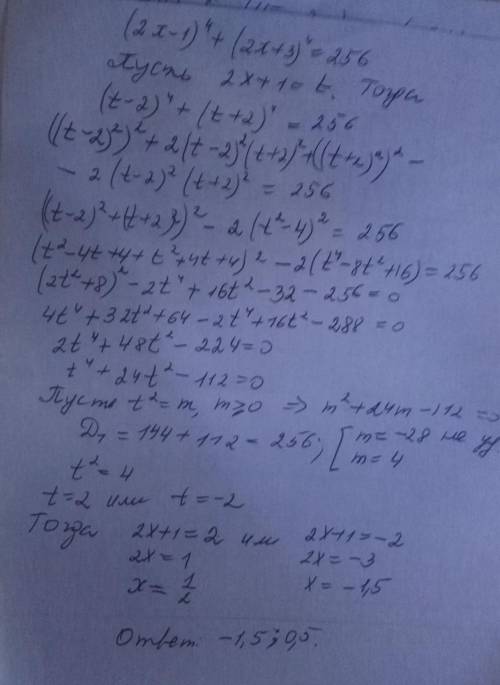 (2x-1)⁴+(2x+3)⁴=256
Пусть 2x+1=t. Тогда
(t-2)⁴+(t+2)⁴=256
((t-2)²)²+2(t-2)²(t+2)²+((t+2)²)²-
-2(t-2)²(t+2)²=256
((t-2)²+(t+2)²)²-2(t²-4)²=256
(t²-4t+4+t²+4t+4)²-2(t⁴-8t²+16)=256
(2t²+8)²-2t⁴+16t²-32-256=0
4t⁴+32t²+64-2t⁴+16t²-288=0
2t⁴+48t²-224=0
t⁴+24t²-112=0
Пусть t²=m, m≥0 => m²+24m-112=
D₁=144+112=256; [m=-28 не
m=4
t²=4
t=2 или t=-2
Тогда 2x+1=2 или 2x+1=-2
2x=1 2x=-3
x=1/2 x=-1,5
Ответ: -1,5; 0,5.